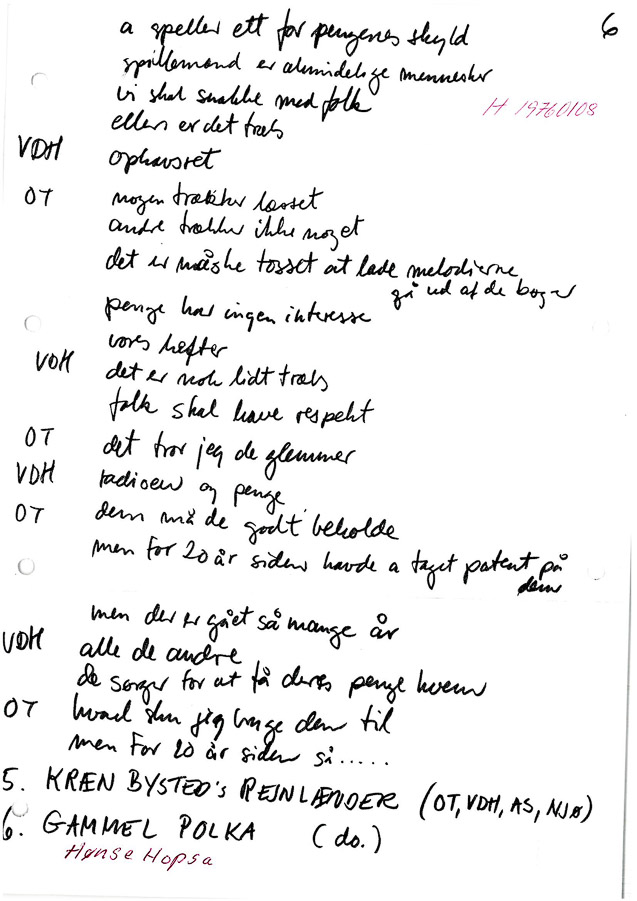 6
a speller ett for pengenes skyld
spillemænd er almindelige mennesker
vi skal snakke med folk
H 19760108
ellers er det træls
VDH ophavsret
OT nogen trækker læsset
andre trækker ikke noget
det er måske tosset at lade melodierne
gå ud af de bøger
penge har ingen interesse
vores hæfter
VDH det er nok lidt træls
folk skal have respekt
OT det tror jeg de glemmer
VDH radioen og penge
OT dem må de godt beholde
men for 20 år siden havde a taget patent på
dem
men der er gået så mange år
VDH alle de andre
de sørger for at få deres penge hvem
OT hvad sku jeg bruge dem til
men for 20 år siden så.....
5. KRÆN BYSTED's REJNLÆNDER (OT, VDH, AS, NJØ)
6. GAMMEL POLKA (do.)
Hønse Hopsa